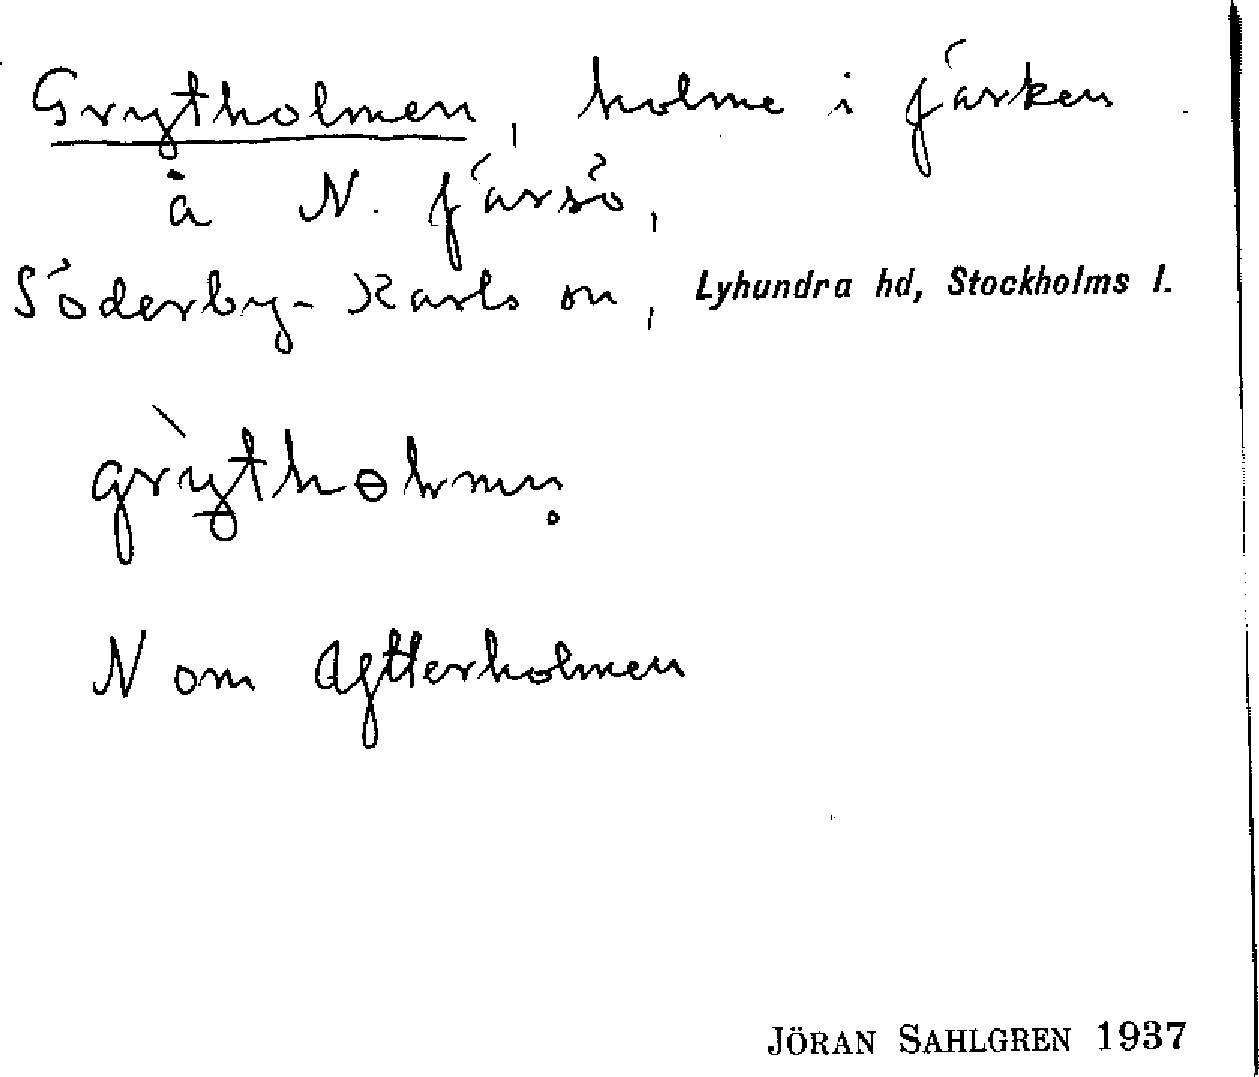 Grytholmen, holme i färken
å N. färsö,
Söderby-Karls sn, Lyhundra hd, Stockholms l.
N om Aftterholmen
JÖRAN SAHLGREN 1937